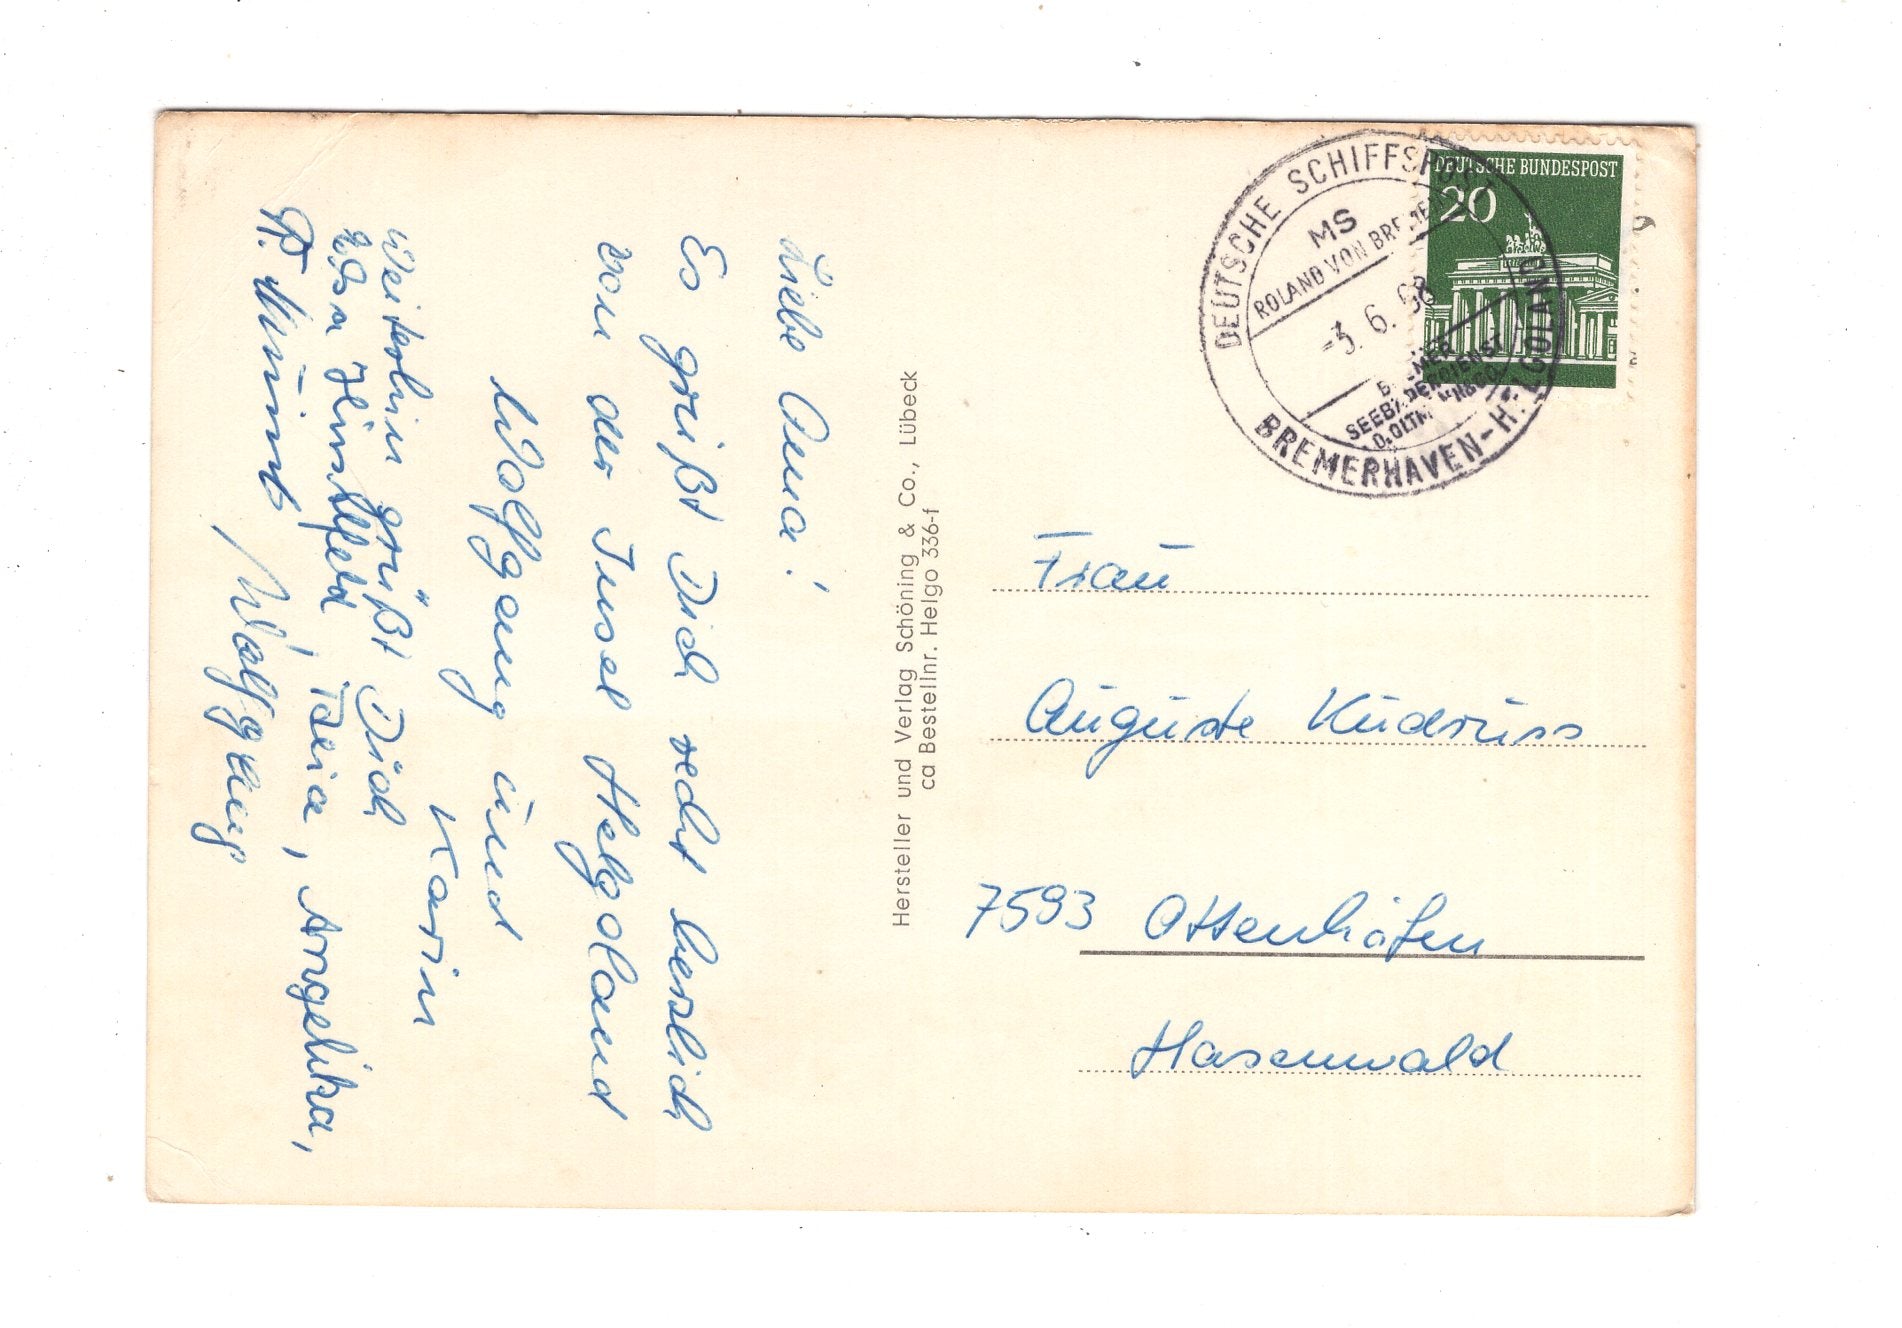 Liebe Oma!
Es grüßt Dich recht herzlich
von der Insel Helgoland
Wolfgang und
Karin
Weiterhin grüßt Dich
Talia, Angelika,
Wolfgang
Hersteller und Verlag Schöning & Co., Lübeck
ca Bestellnr. Helgo 336-f
DEUTSCHE SCHIFFSPOST
MS
ROLAND VON BREMEN
-3.6.68
BREMER
SEEBÄDERDIENST
BREMERHAVEN-HELGOLAND
DEUTSCHE BUNDESPOST
20
Frau
Auguste Kudruss
7593 Ottenhöfen
Hasenwald